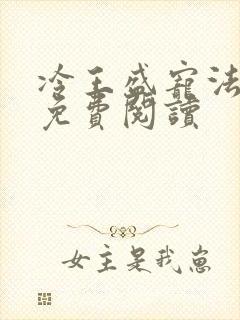 冷王盛寵法
免費閱讀
女主是我崽